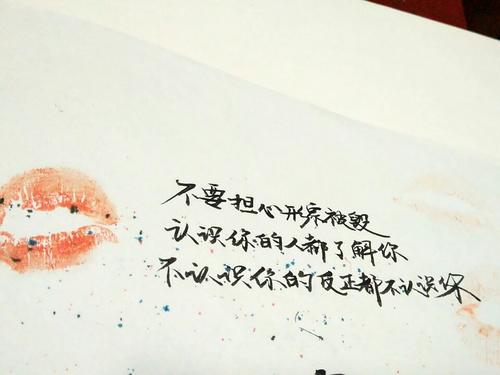 不要担心形象被毁
认识你的人都了解你
不认识你的反正都不认识你